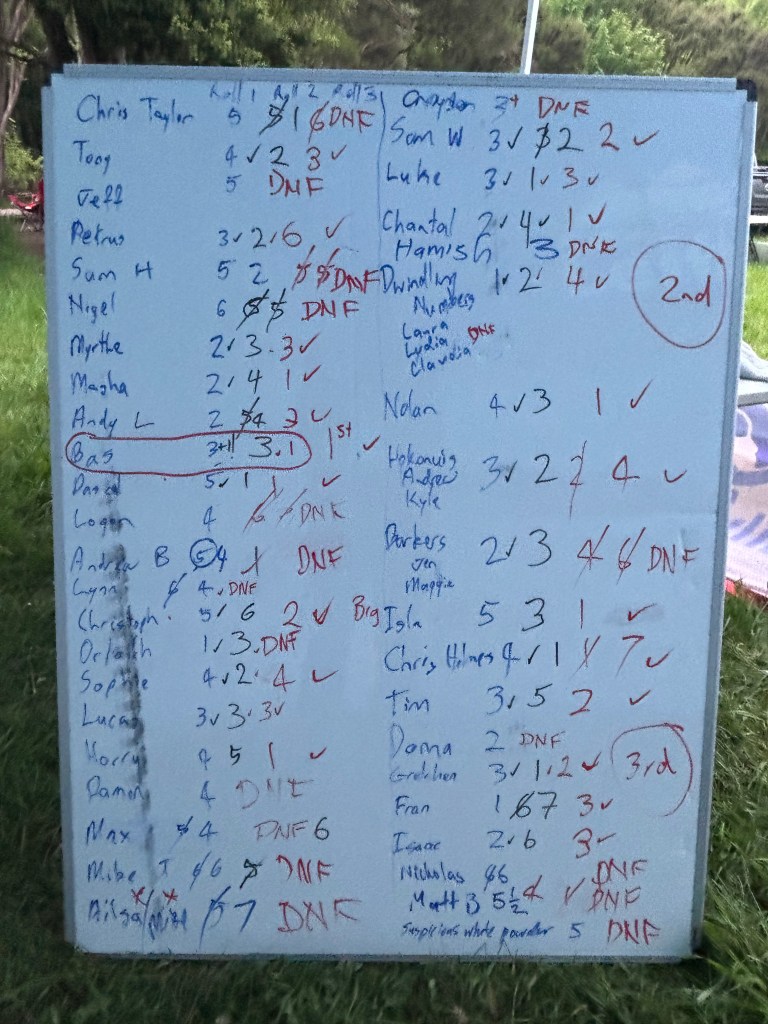 Roll 1 Roll 2 Roll 3
Chris Taylor 5 5 1 6 DNF
Tony 4 ✓ 2 3 ✓
Jeff 5 DNF
Petrus 3 ✓ 2 ✓ 6 ✓
Sam H 5 2 5 5 DNF
Nigel 6 5 5 DNF
Myrthe 2 ✓ 3 3 ✓
Masha 2 ✓ 4 1 ✓
Andy L 2 5 4 3 ✓
Bas 3+!! 3 1 1st ✓
5 ✓ 1 1 ✓
Logan 4 6 DNF
Andrew B 5 4 1 DNF
Lynn 5 4 DNF
Christoph 5 ✓ 6 2 ✓
Orlaith 1 ✓ 3 DNF
Sophie 4 ✓ 2 4 ✓
Lucas 3 ✓ 3 3 ✓
Harry 4 5 1 ✓
Damon 4 DNF
Max 5 4 DNF 6
Mike T 6 6 5 DNF
Ailsa/Mike 5 7 DNF
3+ DNF
Sam W 3 ✓ 3 2 2 ✓
Luke 3 ✓ 1 ✓ 3 ✓
Chantal 2 ✓ 4 ✓ 1 ✓
Hamish 3 DNF
Dwindling 1 ✓ 2 4 ✓ 2nd
Numbers
Laura DNF
Lydia
Claudia
Nolan 4 ✓ 3 1 ✓
Hokonuis 3 ✓ 2 2 4 ✓
Andrew
Kyle
Darkers 2 ✓ 3 4 6 DNF
Jen
Maggie
Big Isla 5 3 1 ✓
Chris Holmes 4 ✓ 1 1 7 ✓
Tim 3 ✓ 5 2 ✓
Doma 2 DNF
Gretchen 3 ✓ 1 ✓ 2 ✓ 3rd
Fran 1 6 7 3 ✓
Isaac 2 ✓ 6 3 ✓
Nicholas 6 6 DNF
Matt B 5 1/2 4 ✓ DNF
Suspicious white powder 5 DNF